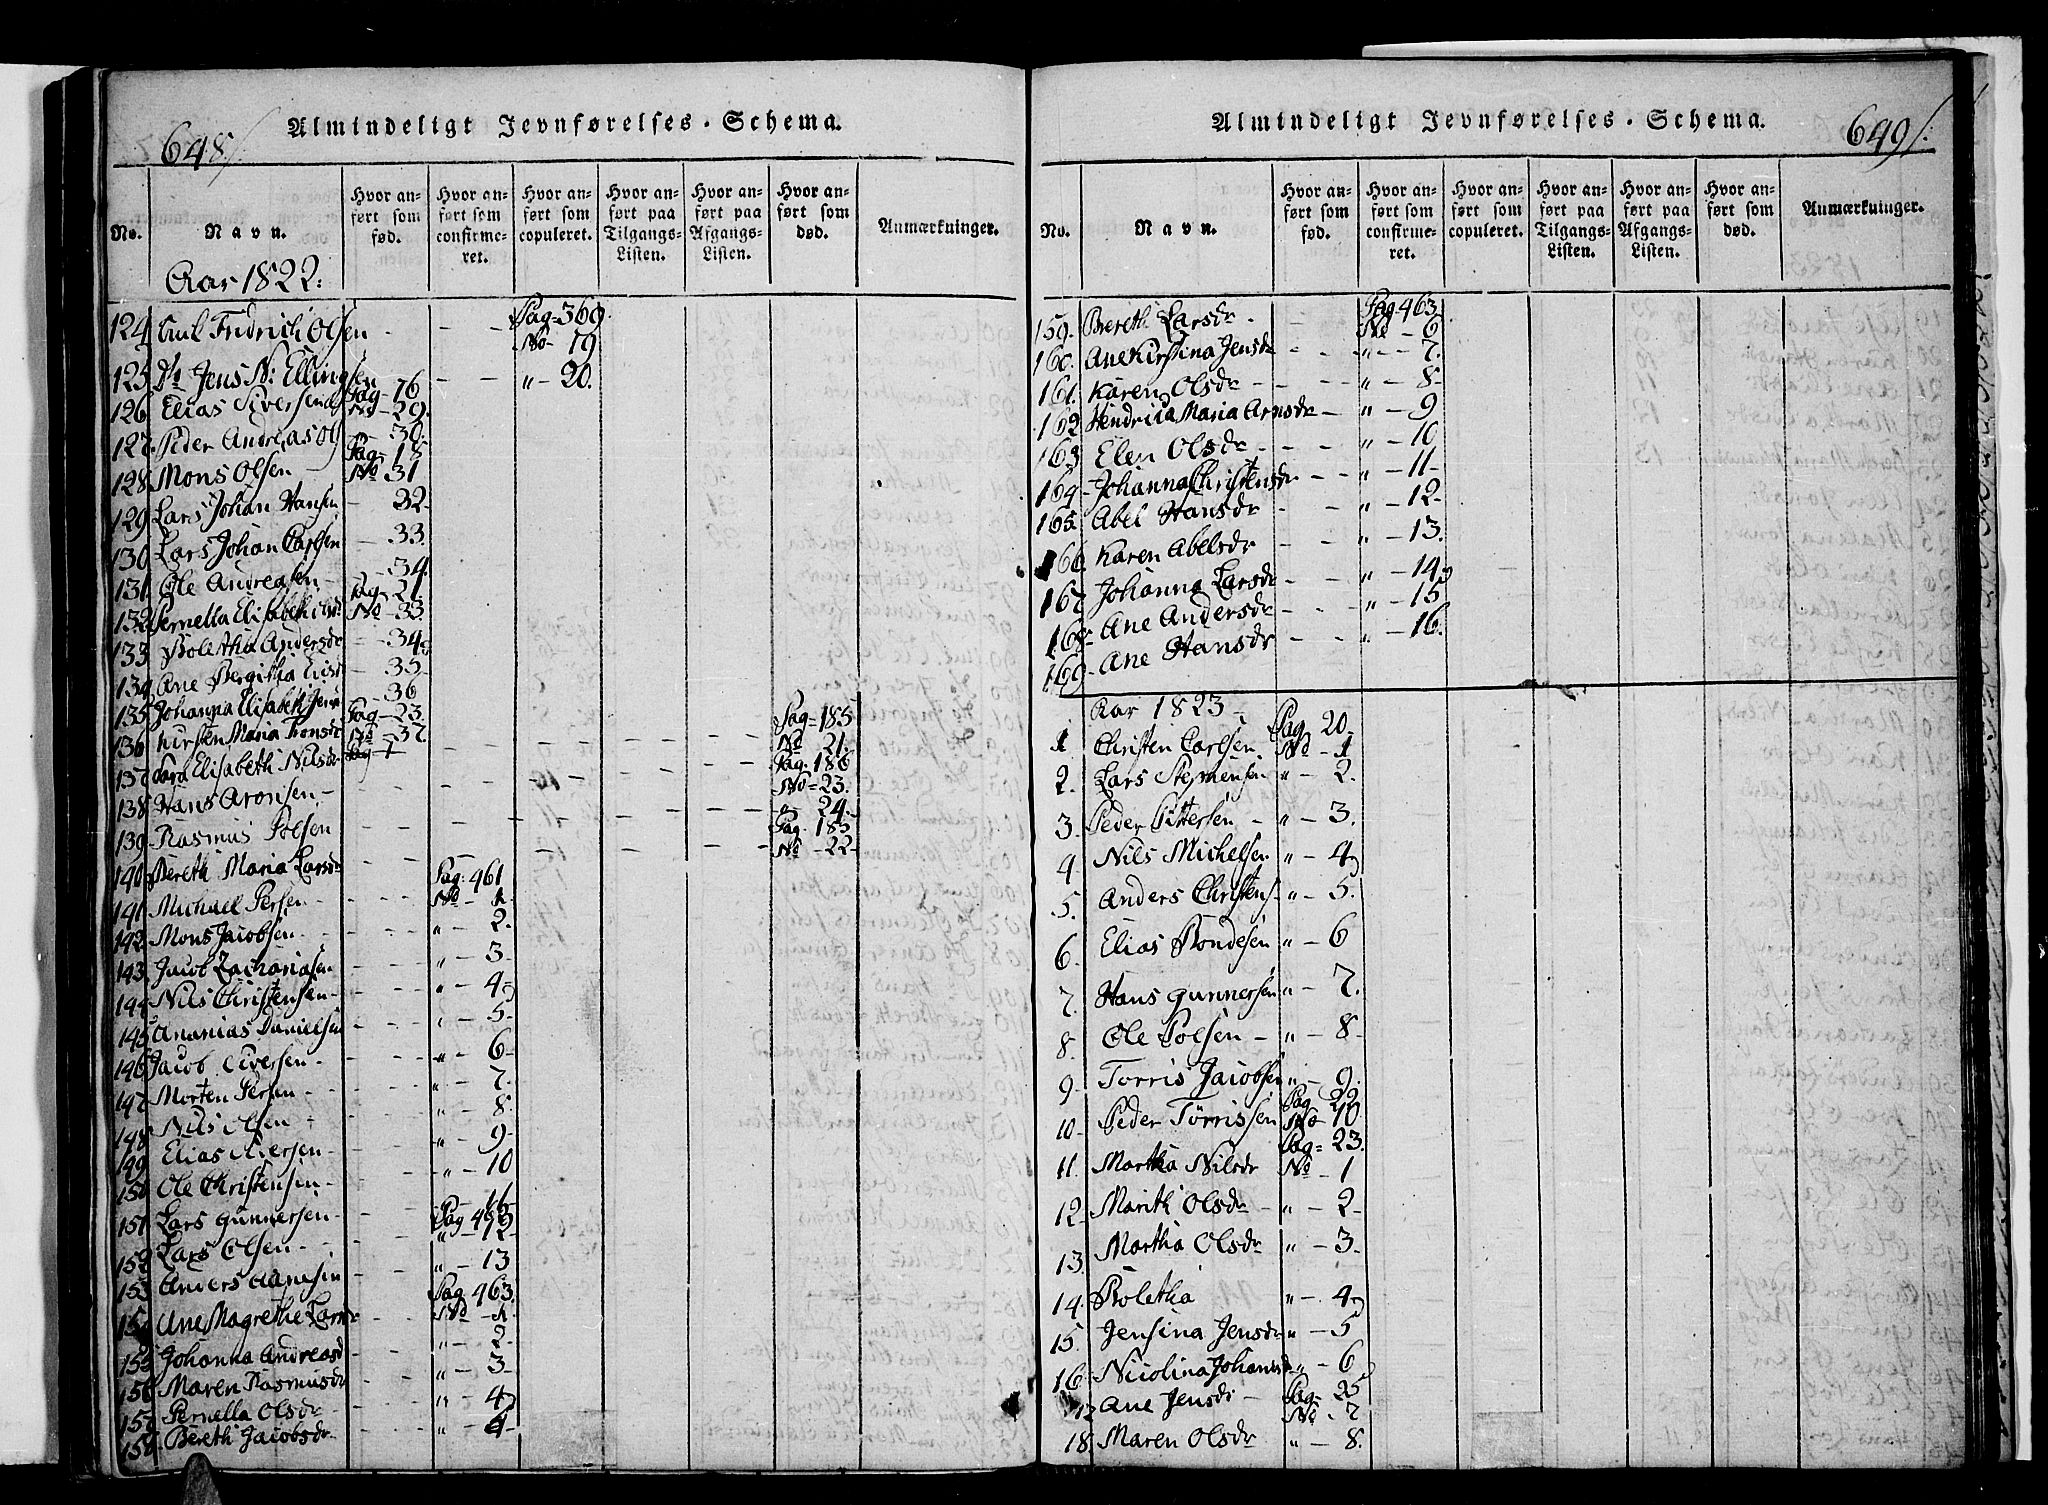 648/.
Almindeligt Jevnførelses-Schema.
No. Navn. Hvor anført som fød. Hvor anført som confirmeret. Hvor anført som copuleret. Hvor anført paa Tilgangs-Listen. Hvor anført paa Afgangs-Listen. Hvor anført som død. Anmærkninger.
Aar 1822:
124 Fridrich Olsen - - - Pag-369. No- 19
125 Jens N: Ellingsen - - " - 20.
126 Elias Siversen Pag-16 No-29.
127. Peder Andreas - 30.
128 Mons Olsen Pag-18 No 31
129 Lars Johan Hansen - 32-
130 Lars Johan Carlsen - 33.
131. Ole Andreasen - - 34.
132 Pernella Elisabeth Pag-21. No-33.
133 Boletha Andersdr - 34
134 Ane Bergitha - 35-
135 Johanna Elisabeth - 36
136 Kirsten Maria Pag-23. No-37.
137 Sara Elisabeth Nilsdr Pag- - - - - Pag-185 No 21.
138 Hans Aronsen - - - - - - - Pag. 186 No-23.
139 Rasmus Polsen - - - - - - " - 24.
140 Bereth Maria Larsdr - - - - - - Pag. 185 No -22-
141 Michael Persen - - - - Pag: 461 No - 1.
142 Mons Jacobsen - - - " - 2.
143 Jacob Zachariasen - - - " - 3-
144 Nils Christensen - - - " - 4
145 Ananias Danielsen - - - " - 5.
146 Jacob Siversen - - - " - 6-
147 Morten Persen - - - " - 7.
148 Nils Olsen - - - " - 8.
149 Elias - - - " - 9-
150 Ole Christensen - - - " - 10
151 Lars Gunnersen - - -
152 Lars Olsen - - - " - 12-
153 Anders - - " - 13
154 Ane Magrethe - - - Pag 463. No - 1.
155 Johanna Andreasd - - " - 2-
156 Maren Rasmusdr - - " - 3-
157 Pernella Olsdr - - - " - 4
158 Bereth Jacobsdr - - "
649/.
Almindeligt Jevnførelses-Schema.
No. Navn. Hvor anført som fød. Hvor anført som confirmeret. Hvor anført som copuleret. Hvor anført paa Tilgangs-Listen. Hvor anført paa Afgangs-Listen. Hvor anført som død. Anmærkninger.
159. Bereth Larsdr - - Pag 463. No - 6
160. Ane Kirstina Jensdr - - " - 7.
161. Karen Olsdr - - - " - 8-
162 Hendrica Maria Arnsdr - " - 9
163 Elen Olsdr - - - " - 10
164- Johanna Christensdr - - " - 11-
165. Abel Hansdr - - " - 12-
166. Karen Abelsdr - - " - 13.
167 Johanna Larsdr - - " - 14
168 Ane Andersdr - - - " - 15
169- Ane Hansdr - - " - 16.
Aar 1823-
1 Christen Carlsen Pag 20- No - 1
2. Lars " - 2.
3. Peder Pittersen - " - 3.
4. Nils Michelsen " - 4
5. Anders Christens. " - 5.
6. Elias Bondesen " - 6
7. Hans Gunnersen " - 7.
8. Ole Polsen - " - 8.
9- Torris Jacobsen " - 9.
10- Peder Torrissen Pag 22 No 10
11. Martha Nilsdr Pag-23. No - 1
12. Marith Olsdr - " - 2-
13. Martha Olsdr " - 3-
14. Boletha " - 4
15. Jensina Jensdr " - 5
16. Nicolina Johansdr " - 6
17 Ane Jensdr - Pag- 25 No - 7
18. Maren Olsdr " - 8.